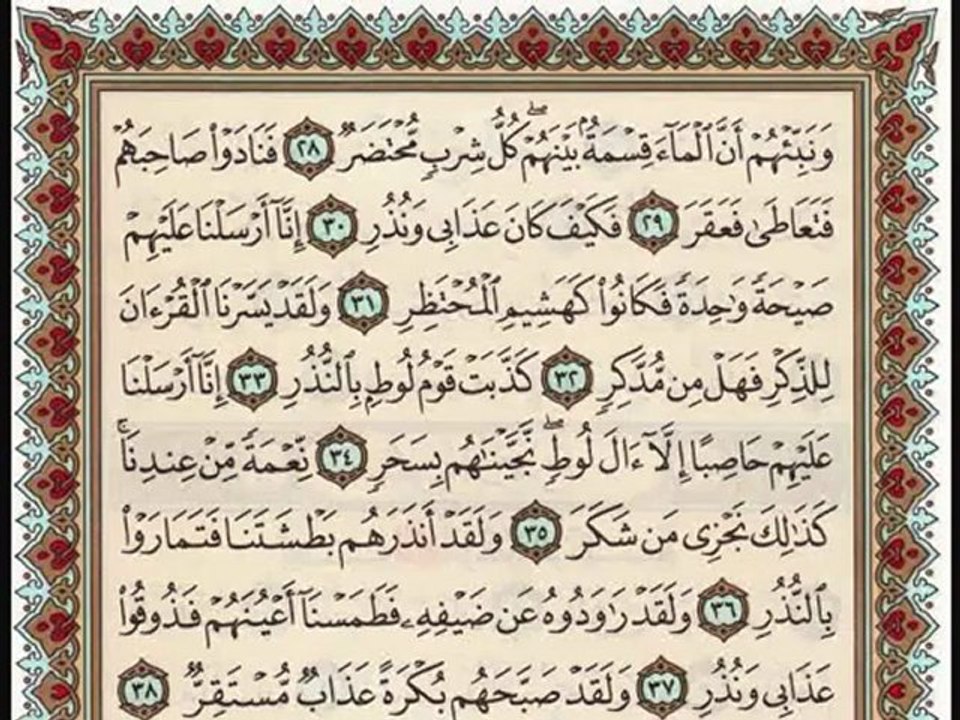 وَنَبِّئْهُمْ أَنَّ ٱلْمَآءَ قِسْمَةٌۢ بَيْنَهُمْ ۖ كُلُّ شِرْبٍ مُّحْتَضَرٌ ٢٨ فَنَادَوْا۟ صَاحِبَهُمْ
فَتَعَاطَىٰ فَعَقَرَ ٢٩ فَكَيْفَ كَانَ عَذَابِى وَنُذُرِ ٣٠ إِنَّآ أَرْسَلْنَا عَلَيْهِمْ
صَيْحَةً وَٰحِدَةً فَكَانُوا۟ كَهَشِيمِ ٱلْمُحْتَظِرِ ٣١ وَلَقَدْ يَسَّرْنَا ٱلْقُرْءَانَ
لِلذِّكْرِ فَهَلْ مِن مُّدَّكِرٍ ٣٢ كَذَّبَتْ قَوْمُ لُوطٍۭ بِٱلنُّذُرِ ٣٣ إِنَّآ أَرْسَلْنَا
عَلَيْهِمْ حَاصِبًا إِلَّآ ءَالَ لُوطٍ ۖ نَّجَّيْنَٰهُم بِسَحَرٍ ٣٤ نِّعْمَةً مِّنْ عِندِنَا ۚ
كَذَٰلِكَ نَجْزِى مَن شَكَرَ ٣٥ وَلَقَدْ أَنذَرَهُم بَطْشَتَنَا فَتَمَارَوْا۟
بِٱلنُّذُرِ ٣٦ وَلَقَدْ رَٰوَدُوهُ عَن ضَيْفِهِۦ فَطَمَسْنَآ أَعْيُنَهُمْ فَذُوقُوا۟
عَذَابِى وَنُذُرِ ٣٧ وَلَقَدْ صَبَّحَهُم بُكْرَةً عَذَابٌ مُّسْتَقِرٌّ ٣٨